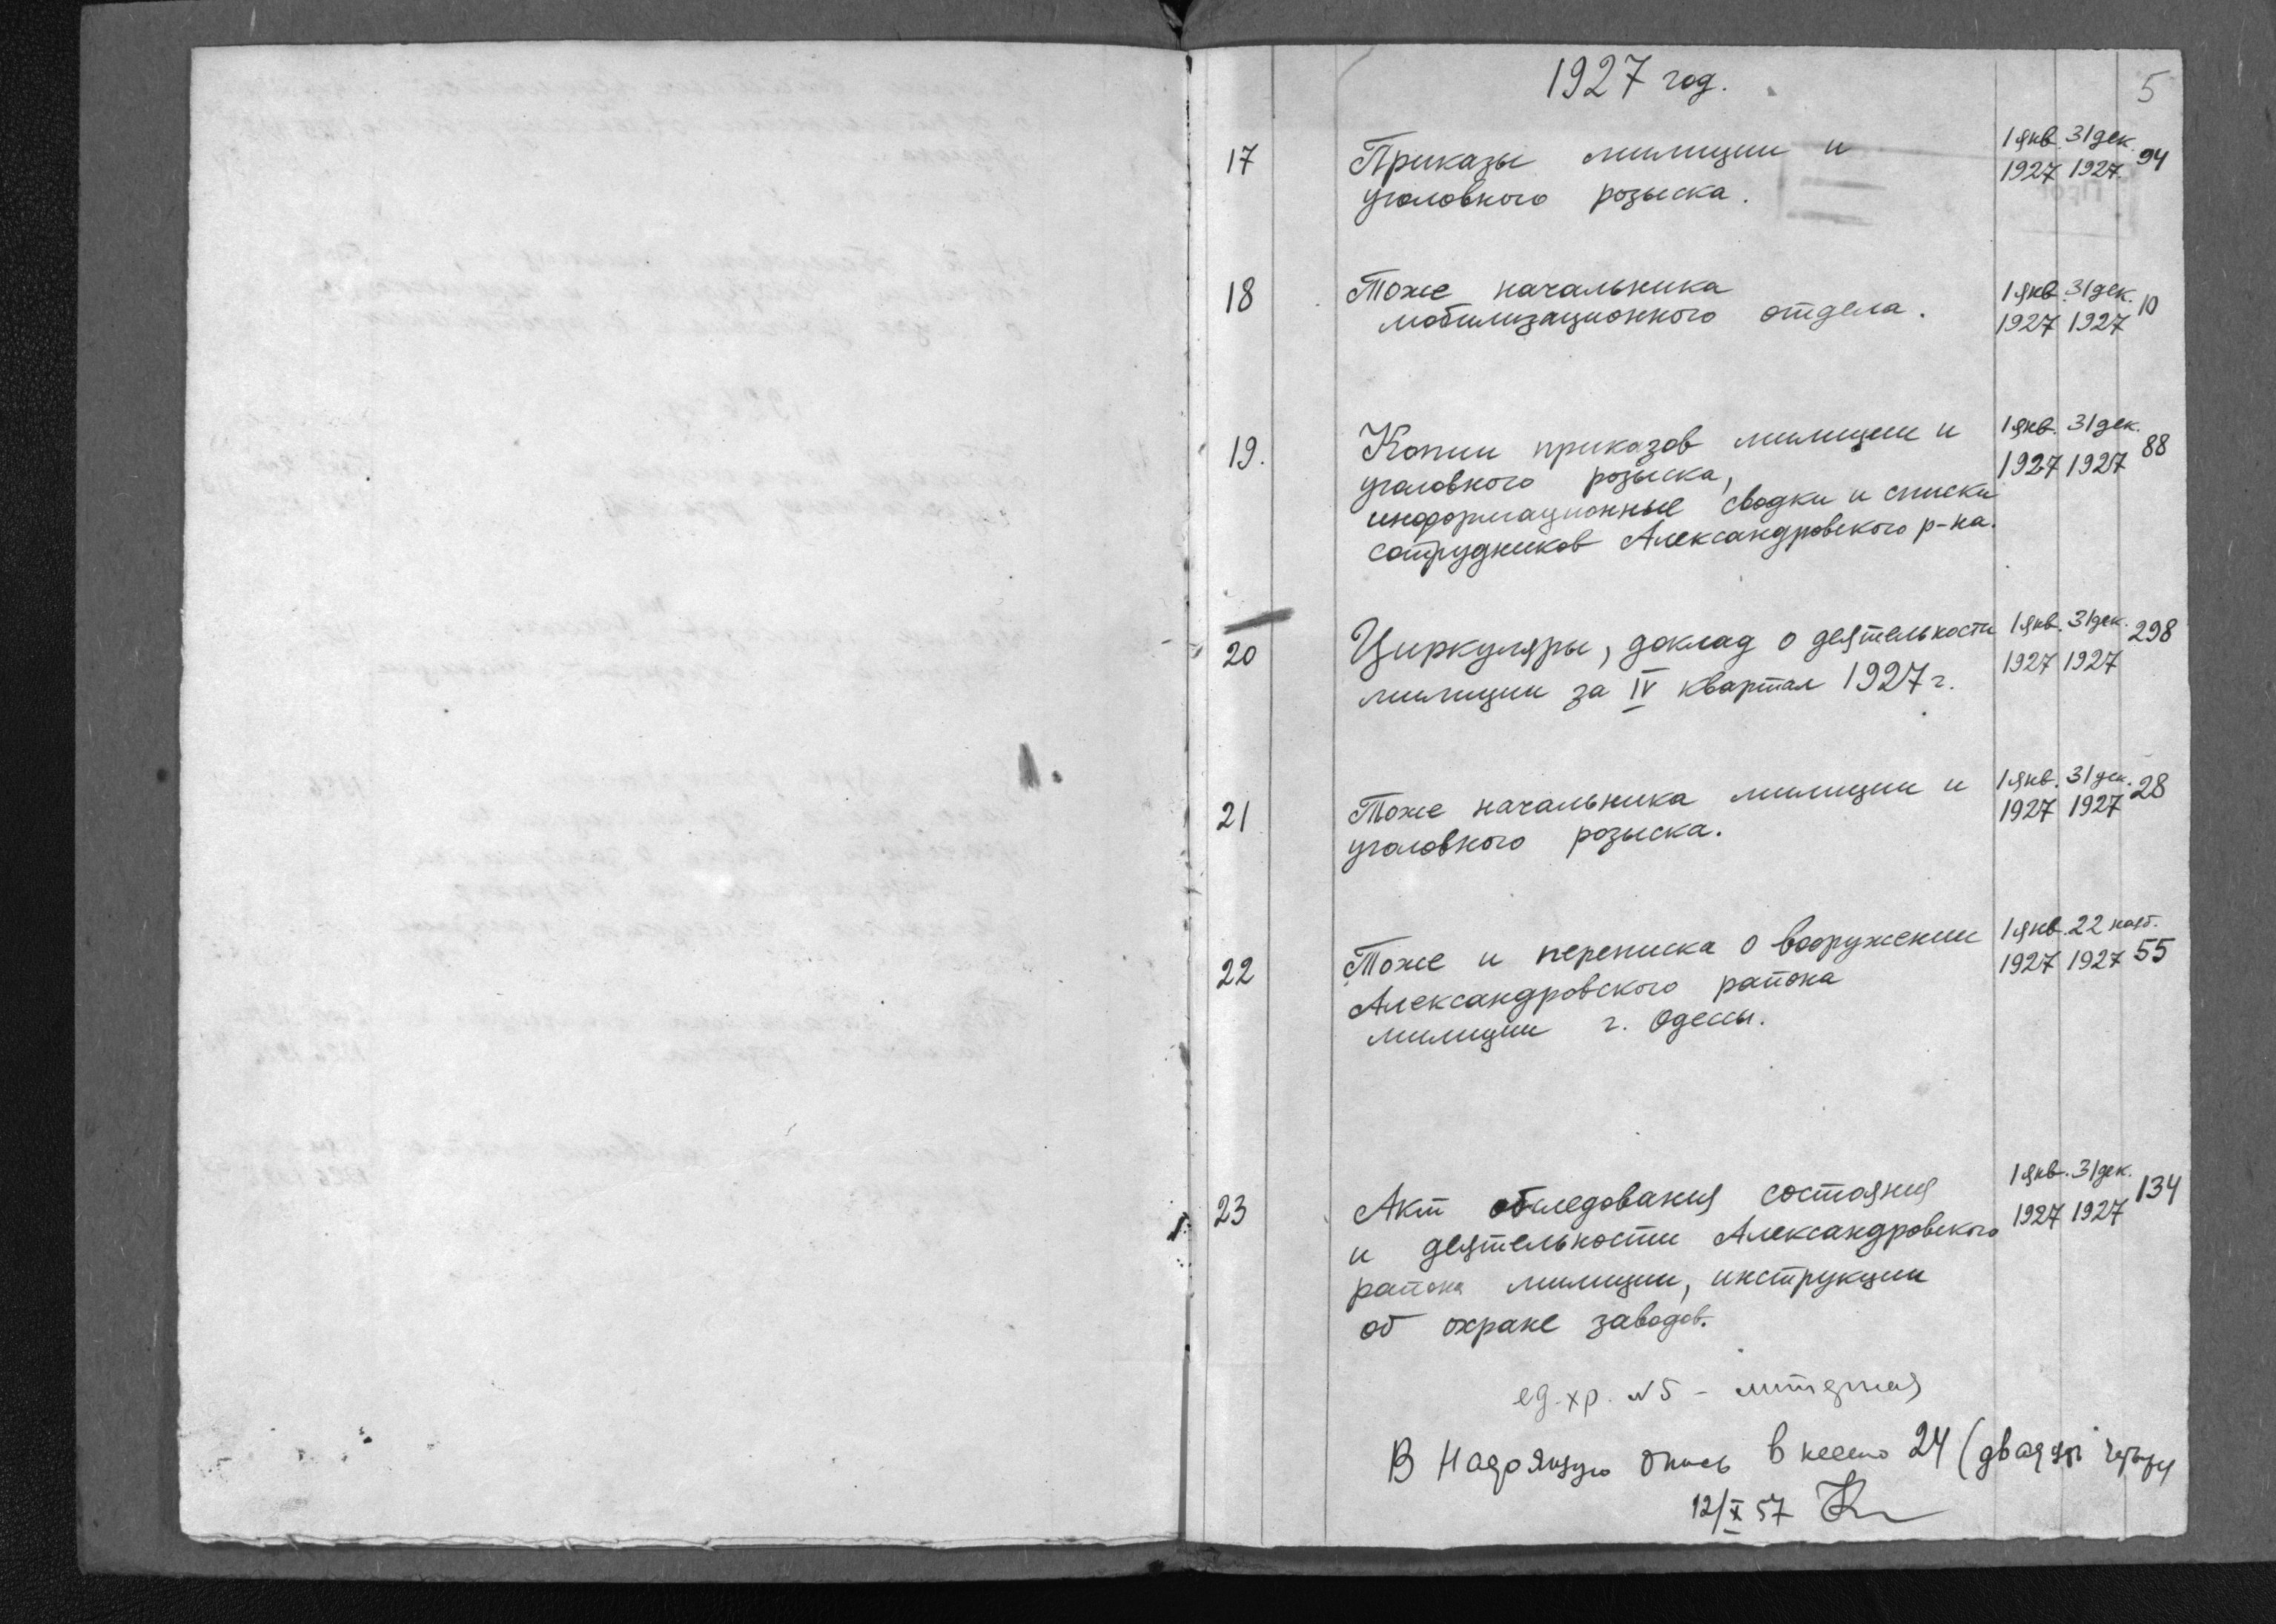 5
1927 год.
17 Приказы милиции и 1 янв. 31 дек. 94
уголовного розыска. 1927 1927
18 Тоже начальника 1 янв. 31 дек. 10
мобилизационного отдела. 1927 1927
19. Копии приказов милиции и 1 янв. 31 дек. 88
уголовного розыска, 1927 1927
информационные сводки и списки
сотрудников Александровского р-на.
20 Циркуляры, доклад о деятельности 1 янв. 31 дек. 298
милиции за IV квартал 1927 г. 1927 1927
21 Тоже начальника милиции и 1 янв. 31 дек. 28
уголовного розыска. 1927 1927
22 Тоже и переписка о вооружении 1 янв. 22 нояб. 55
Александровского района 1927 1927
милиции г. Одессы.
23 Акт обследования состояния 1 янв. 31 дек. 134
и деятельности Александровского 1927 1927
района милиции, инструкции
об охране заводов.
ед. хр. №5 - литерная
В настоящую опись внесено 24 (двадцать четыре
12/X 57